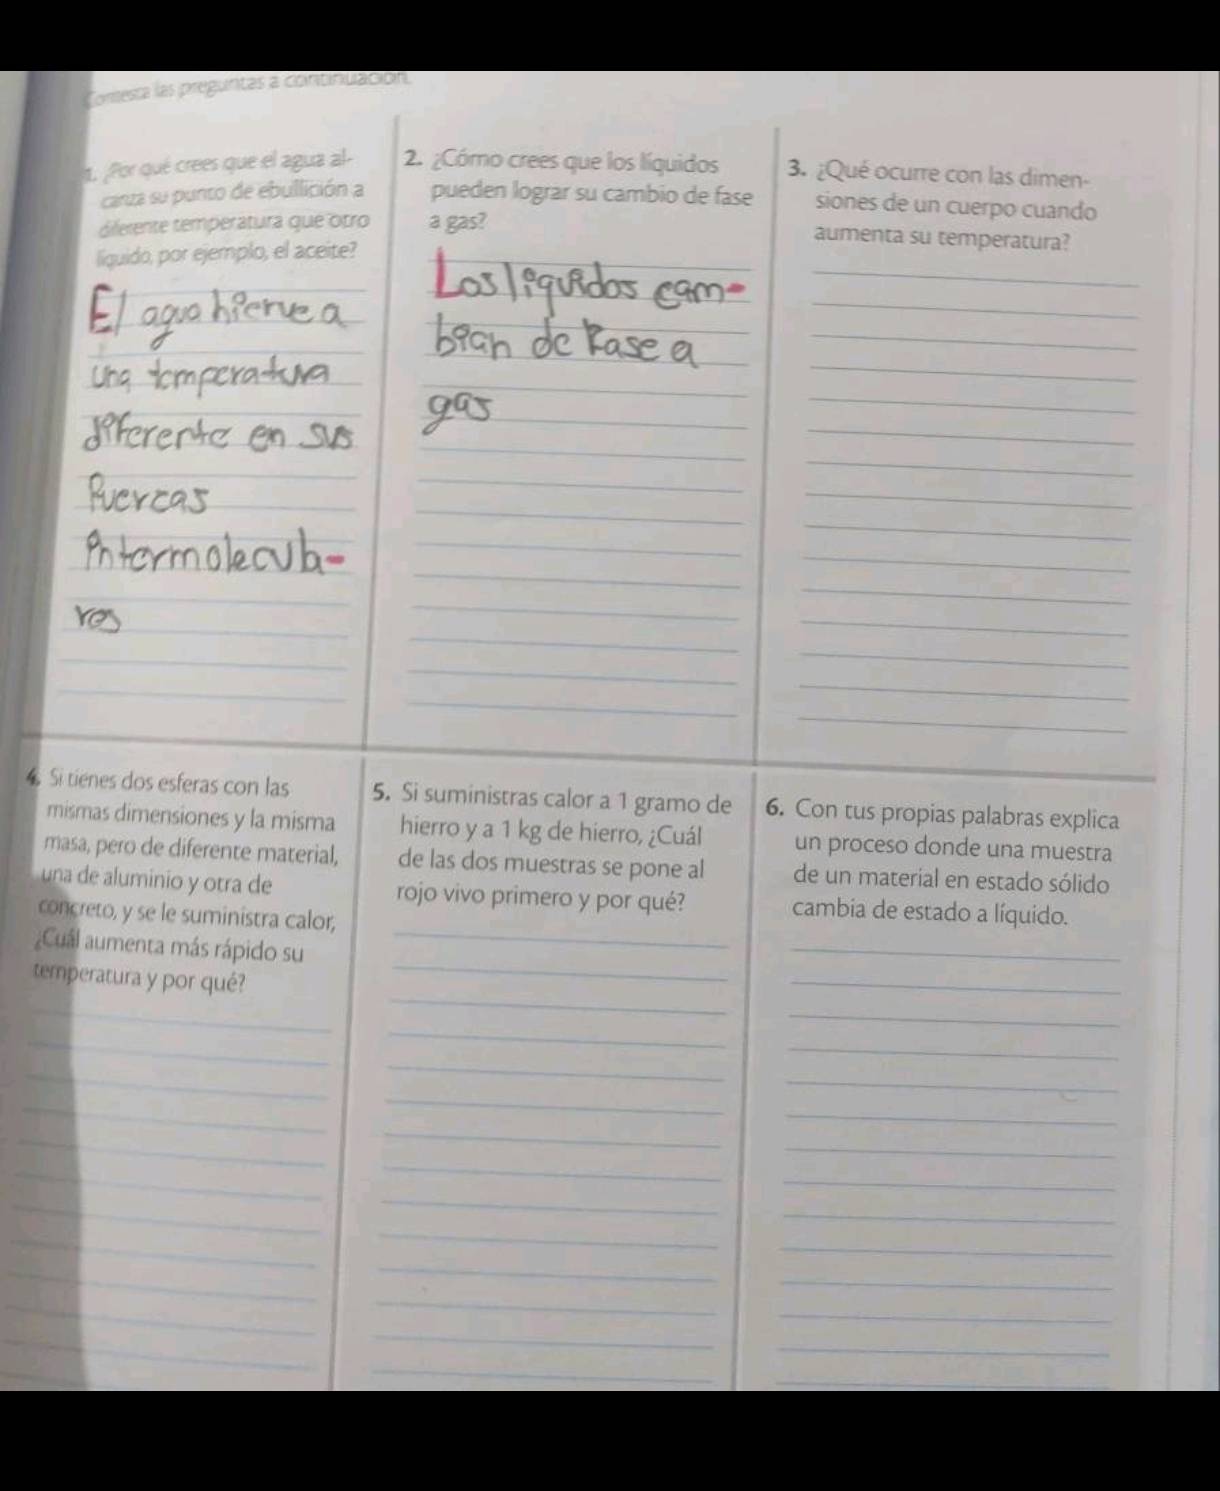 Contesta las preguntas a continuación.
1. ¿Por qué crees que el agua al-
canza su punto de ebullición a
diferente temperatura que otro
líquido, por ejemplo, el aceite?
El agua hierve a
una temperatura
diferente en sus
fuercas
intermolecula-
res
2. ¿Cómo crees que los líquidos
pueden lograr su cambio de fase
a gas?
Los líquidos cam-
bian de fase a
gas
3. ¿Qué ocurre con las dimen-
siones de un cuerpo cuando
aumenta su temperatura?
4. Si tienes dos esferas con las
mismas dimensiones y la misma
masa, pero de diferente material,
una de aluminio y otra de
concreto, y se le suministra calor,
¿Cuál aumenta más rápido su
temperatura y por qué?
5. Si suministras calor a 1 gramo de
hierro y a 1 kg de hierro, ¿Cuál
de las dos muestras se pone al
rojo vivo primero y por qué?
6. Con tus propias palabras explica
un proceso donde una muestra
de un material en estado sólido
cambia de estado a líquido.